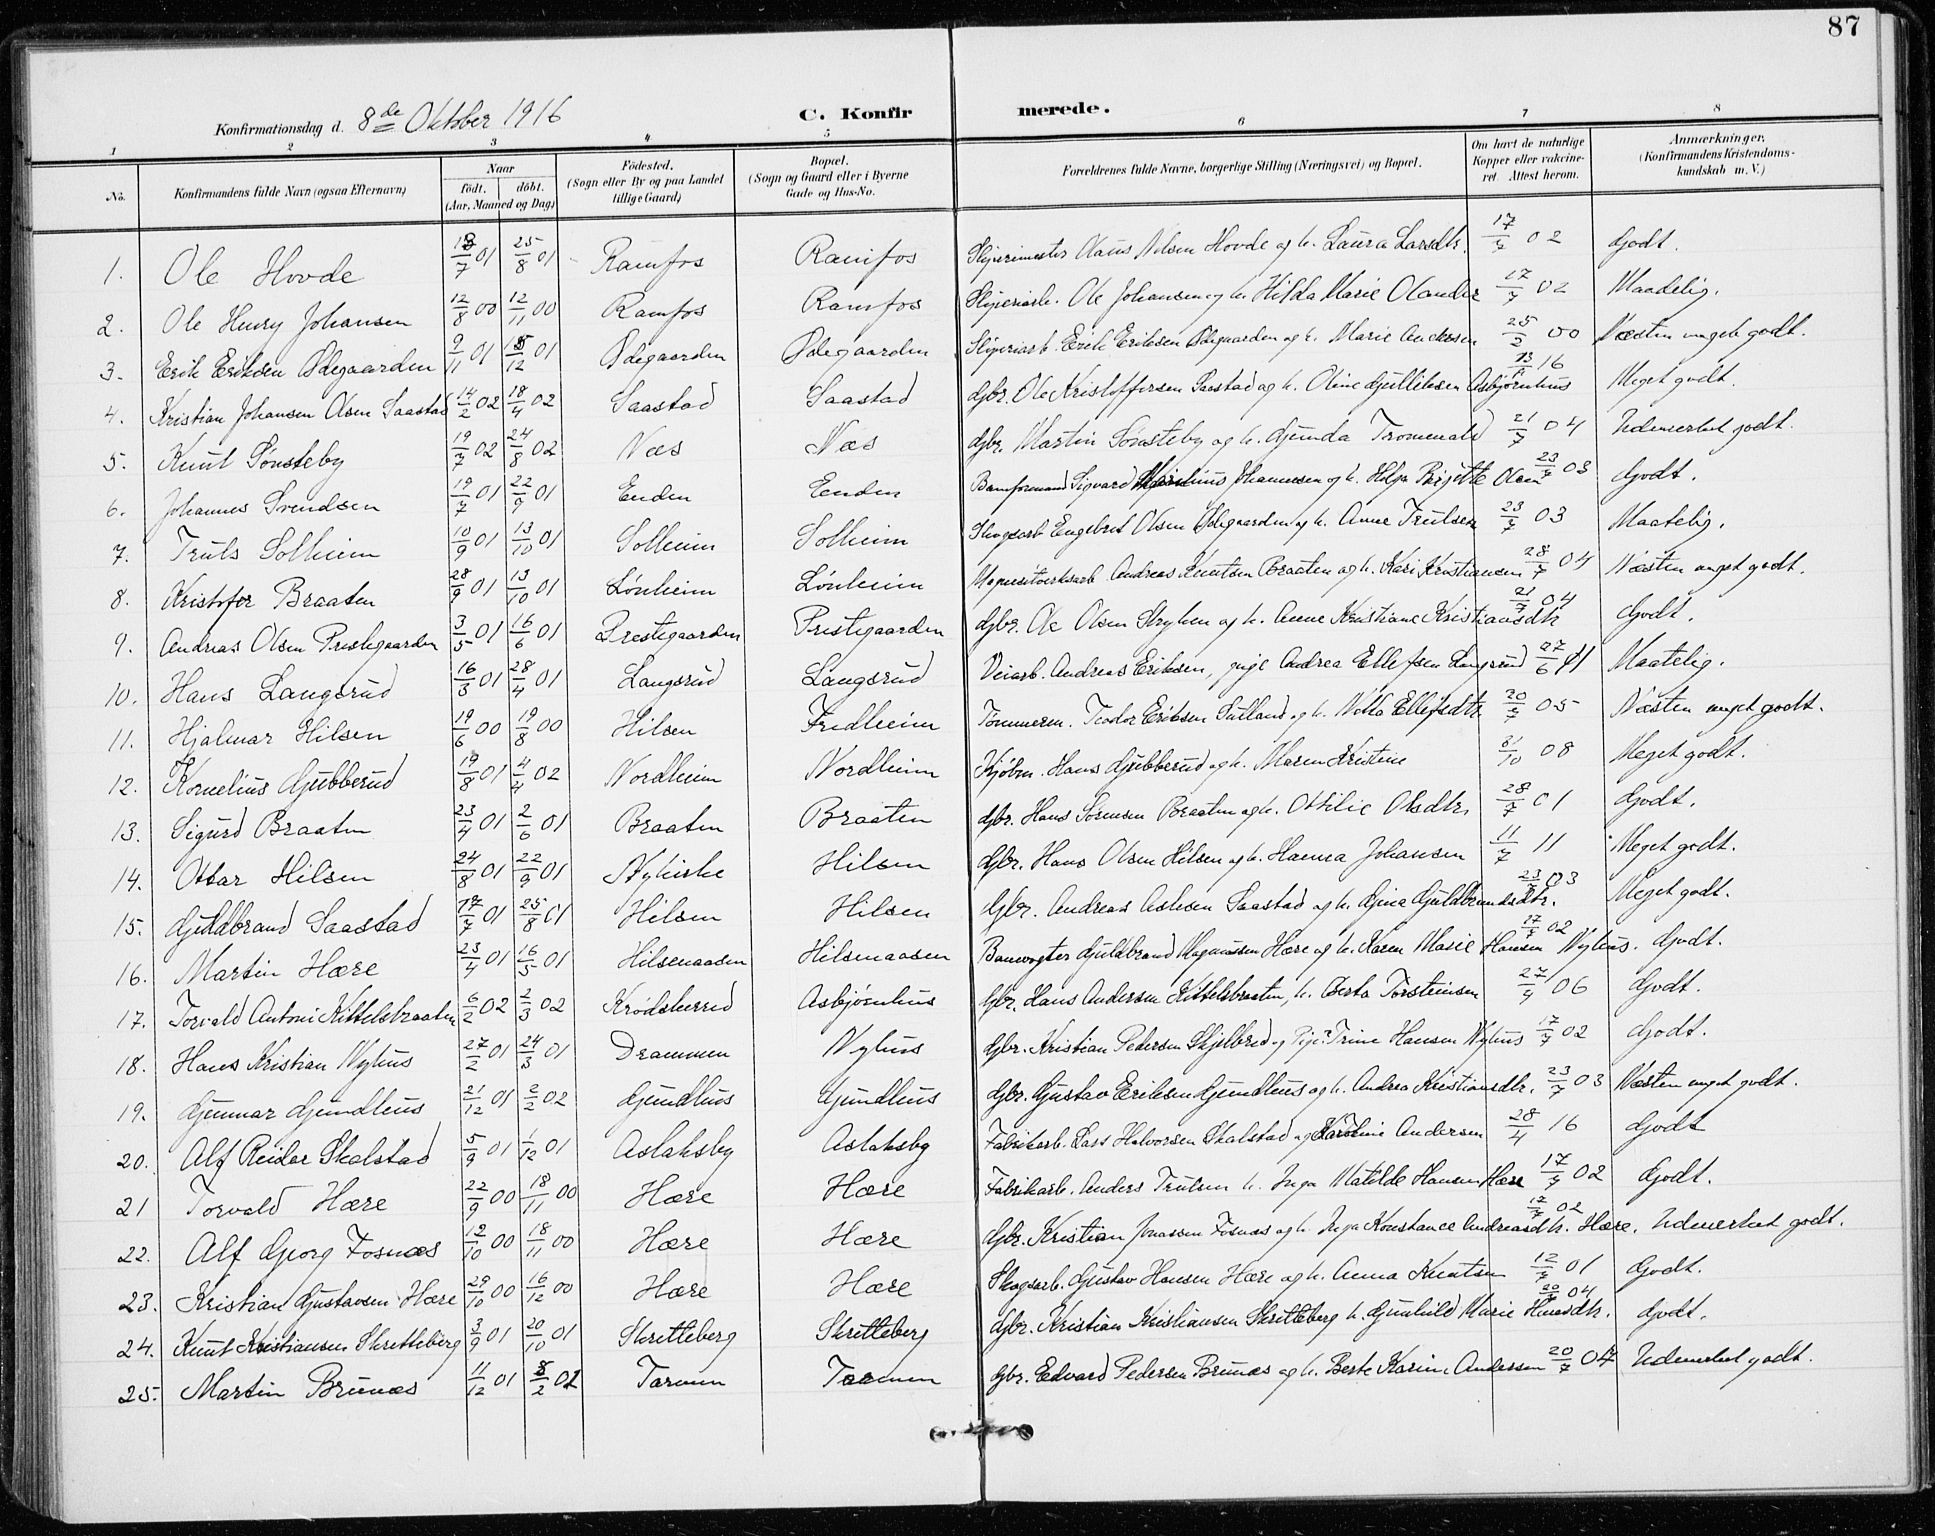 87
Konfirmationsdag d. 8de Oktober 1916 C. Konfirmerede.
1 2 3 4 5 6 7 8
No. Konfirmandens fulde Navn (ogsaa Efternavn) Naar født. døbt. (Aar, Maaned og Dag) Födested. (Sogn eller By og paa Landet tillige Gaard) Bopæl. (Sogn og Gaard eller i Byerne Gade og Hus-No. Forældrenes fulde Navne, borgerlige Stilling (Næringsvei) og Bopæl. Om havt de naturlige Kopper eller vakcineret. Attest herom. Anmærkninger. (Konfirmandens Kristendomskundskab m. V.)
1. Ole Hovde /7 01 25/8 01 Ramfos Ramfos Nilsen Hovde og h. Laura Larsdtr. 17/7 02 Godt.
2. Ole Henry Johansen 12/8 00 12/11 00 Ramfos Ramfos Sliperiarb. Ole Johansen og h. Hilda Marie Olander 17/7 02 Maadelig.
3. Erik Eriksen Ødegaarden 9/11 01 /12 01 Ødegaarden Ødegaarden Sliperiarb. Erik Eriksen Ødegaarden og h. Marie Andersen 25/2 00 Næsten meget godt.
4. Kristian Johansen Olsen Saastad 14/2 02 18/4 02 Saastad Saastad Gbr. Ole Kristoffersen Saastad og h. Oline Gulliksen Asbjørnhus 16 Meget godt.
5. Knut Sønsteby 19/7 02 24/8 02 Næs Næs Gbr. Martin Sønsteby og h. Gunda Tromenald 21/7 04 Udmerket godt.
6. Johannes Svendsen 19/7 01 22/9 01 Enden Enden Sigvard Johannesen og h. Helga Birgitte Olsen 23/7 03 Godt.
7. Truls Solheim 10/9 01 13/10 01 Solheim Solheim Skogsarb. Engebret Olsen Ødegaarden og h. Anne Trulsen 23/7 03 Maatelig.
8. Kristofer Braaten 28/9 01 13/10 01 Lönheim Lönheim Andreas Knutsen Braaten og h. Kari Kristiansen 28/7 04 Næsten meget godt.
9. Andreas Olsen Prestegaarden 3/5 01 16/6 01 Prestegaarden Prestegaarden Gbr. Ole Olsen Stryken og h. Anne Kristiane Kristiansdtr 21/7 04 Godt.
10. Hans Langsrud 16/3 01 28/4 01 Langsrud Langsrud Veiarb. Andreas Eriksen, pige Andrea Ellefsen Langsrud 27/6 Maatelig.
11. Hjalmar Hilsen 19/6 00 19/8 00 Hilsen Fredheim Tømmerm. Teodor Eriksen og h. Ellefsdtr. 20/7 05 Næsten meget godt.
12. Kornelius Gubberud 19/8 01 4/4 02 Nordheim Nordheim Kjøbm. Hans Gubberud og h. Maren Kristine 31/10 08 Meget godt.
13. Sigurd Braaten 23/4 01 2/6 01 Braaten Braaten Gbr. Hans Sørensen Braaten og h. Ottilie Olsdtr. 28/7 01 Godt.
14. Ottar Hilsen 24/8 01 22/9 01 Nykirke Hilsen Gbr. Hans Olsen Hilsen og h. Hanna Johansen 11/7 11 Meget godt.
15. Guldbrand Saastad 17/7 01 25/8 01 Hilsen Hilsen Gbr. Andreas Saastad og h. Gina Guldbrandsdtr. 23/7 03 Meget godt.
16. Martin Hære 23/4 01 16/5 01 Hilsenaasen Hilsenaasen Banevogter Guldbrand Magnussen Hære og h. Karen Marie Hansen Nyhus. 17/7 02 Godt.
17. Torvald Antoni Kittelsbraaten 6/2 02 2/3 02 Krödsherred Asbjørnhus Gbr. Hans Andersen Kittelsbraaten, h. Berta Torsteinsen 27/4 06 Godt.
18. Hans Kristian Nyhus 27/2 01 24/3 01 Drammen Nyhus Gbr. Kristian Pedersen Skjelbred og Pige Trine Hansen Nyhus 17/7 02 Godt.
19. Gunnar Gundhus 21/12 01 2/2 02 Gundhus Gundhus Gbr. Gustav Eriksen Gundhus og h. Andrea Kristiansdtr. 23/7 03 Næsten meget godt.
20. Alf Reidar Skalstad 5/9 01 1/12 01 Aslaksby Aslaksby Fabrikarb. Lars Halvorsen Skalstad og Karoline Andersen 28/4 16 Godt
21 Torvald Hære 22/9 00 18/11 00 Hære Hære Fabrikarb. Anders Trulsen h. Inga Matilde Hansen Hære 17/7 02 Godt.
22. Alf Georg Fosnæs 12/10 00 18/11 00 Hære Hære Gbr. Kristian Jonassen Fosnæs og h. Inga Konstance Andreasdtr. Hære. 17/7 02 Udmerket godt.
23. Kristian Gustavsen Hære 29/10 00 16/12 00 Hære Hære Skogsarb. Gustav Hansen Hære og h. Anna Knutsen 12/7 01 Godt.
24. Knut Kristiansen Skretteberg 3/9 01 20/10 01 Skretteberg Skretteberg Gbr. Kristian Kristiansen Skretteberg h. Gunhild Marie Hansdtr. 04 Godt.
25. Martin Brunæs 11/12 01 /2 02 Tormun Gbr. Edvard Pedersen Brunæs og h. Berte Karine Andersen 20/7 04 Udmerket godt.